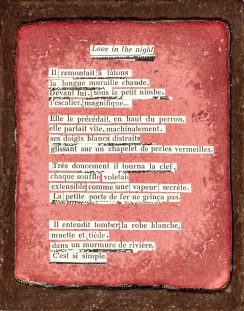 Love in the night
Il remontait à tâtons
la longue muraille chaude.
Devant lui, sous le petit nimbe,
l'escalier, magnifique...
Elle le précédait, en haut du perron,
elle parlait vite, machinalement,
ses doigts blancs distraits
glissant sur un chapelet de perles vermeilles.
Très doucement il tourna la clef,
chaque souffle voletait
extensible comme une vapeur secrète.
La petite porte de fer ne grinça pas.
Il entendit tomber la robe blanche,
muette et tiède,
dans un murmure de rivière.
C'est si simple.